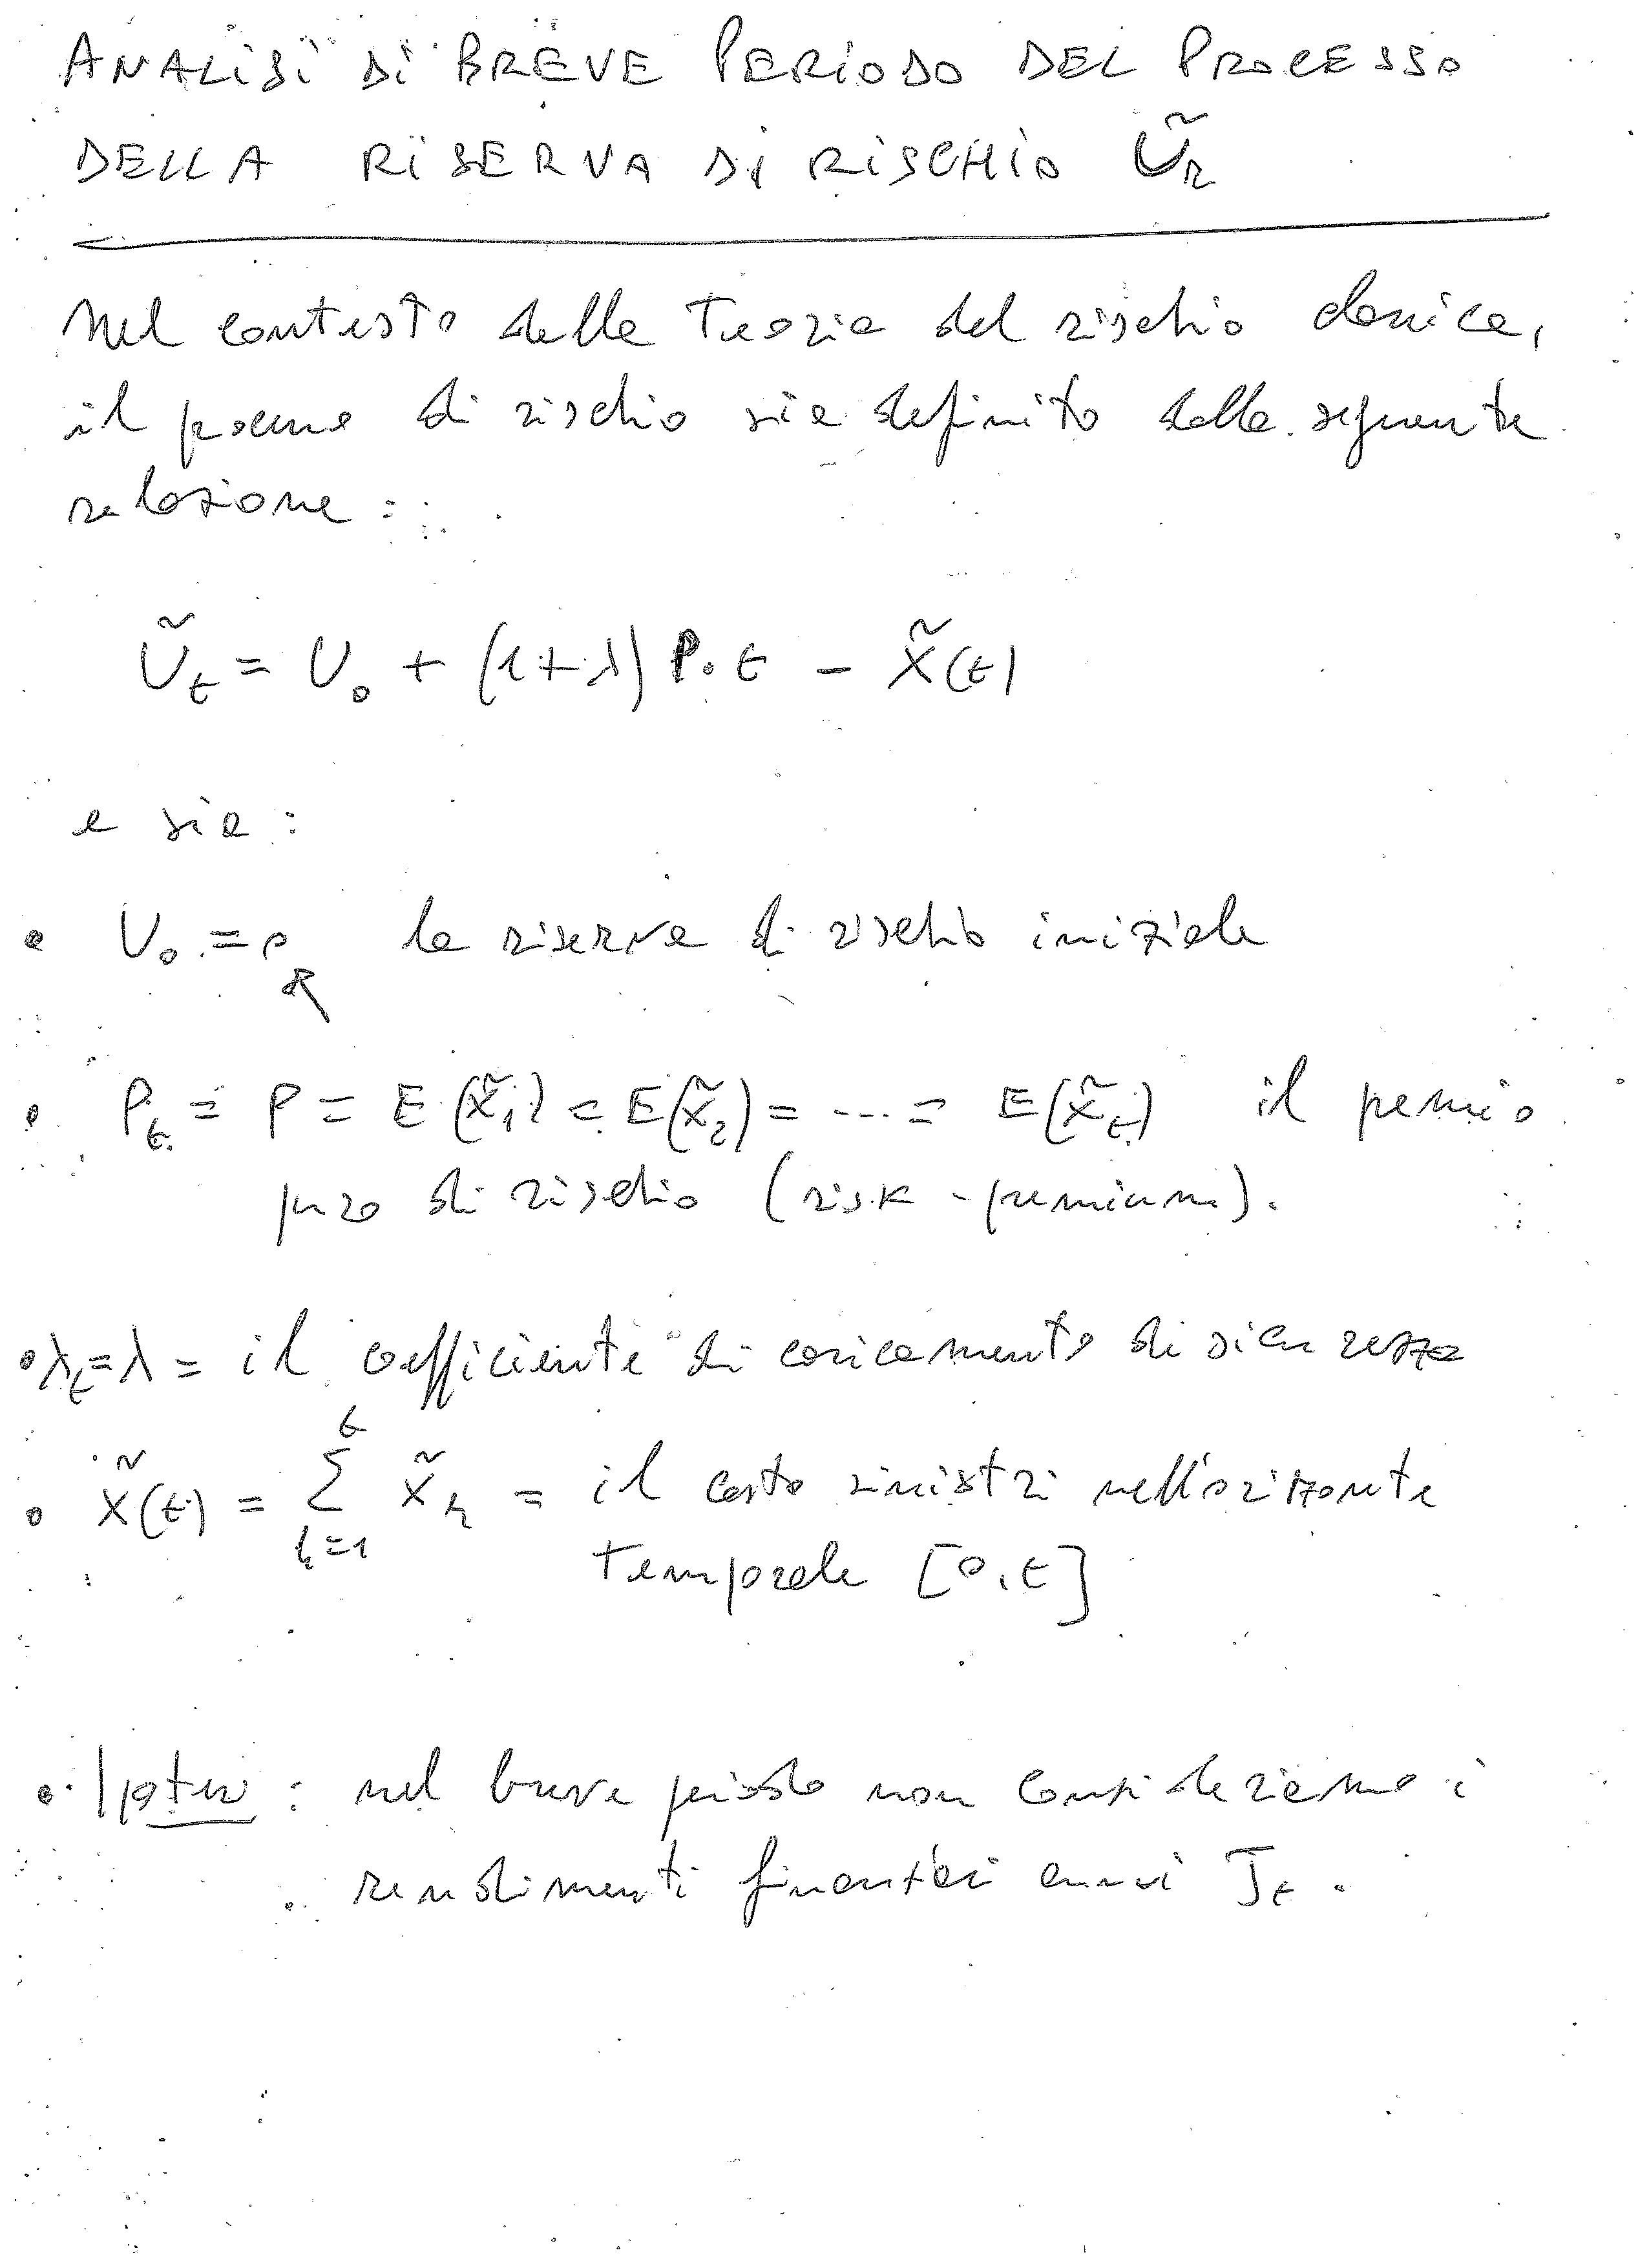 ANALISI DI BREVE PERIODO DEL PROCESSO
DELLA RISERVA DI RISCHIO Ũₜ
Nel contesto della Teoria del rischio classica,
il processo di rischio sia definito dalla seguente
relazione:
Ũₜ = U₀ + (1+λ) P·t - X̃(t)
e sia:
• U₀ = la riserva di rischio iniziale
• Pₜ = P = E(X̃₁) = E(X̃₂) = ... = E(X̃ₜ) il premio
puro di rischio (risk-premium).
• λₜ = λ = il coefficiente di caricamento di sicurezza
t
• X̃(t) = Σ X̃ₕ = il costo sinistri nell'orizzonte
h=1
temporale [0,t]
• Ipotesi: nel breve periodo non consideriamo i
rendimenti finanziari annui Jₜ.